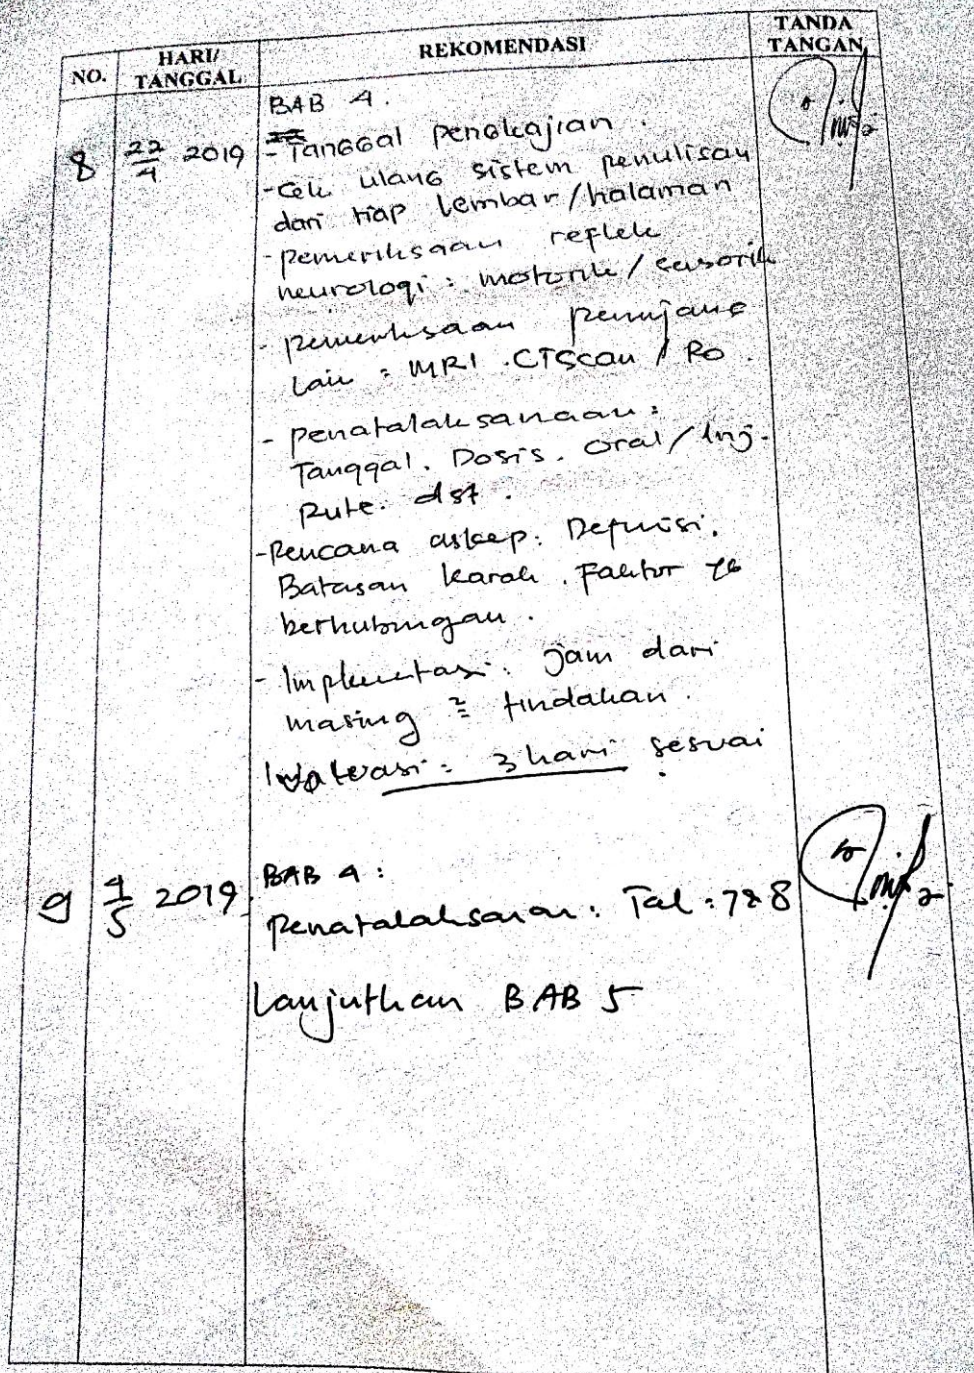 NO. HARI/ TANGGAL REKOMENDASI TANDA TANGAN
BAB 4.
8 22/4 2019 - Tanggal pengkajian.
- Cek ulang sistem penulisan
dari tiap lembar/halaman
- pemeriksaan reflek
neurologi : motorik / sensorik
- pemeriksaan penunjang
Lain : MRI . CTScan / Ro .
- penatalaksanaan :
Tanggal. Dosis. oral / Inj.
Rute. dst .
- Rencana askep : Definisi.
Batasan karak . Faktor yg
berhubungan .
- Implementasi : jam dari
masing 2 tindakan .
3 hari sesuai
9 4/5 2019 BAB 4 :
Penatalaksanaan : Tal : 7 & 8
Lanjutkan BAB 5